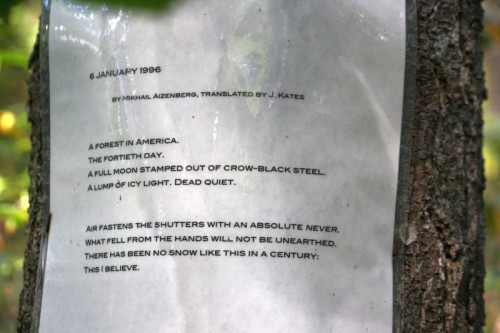 6 JANUARY 1996
BY MIKHAIL AIZENBERG, TRANSLATED BY J. KATES
A FOREST IN AMERICA.
THE FORTIETH DAY.
A FULL MOON STAMPED OUT OF CROW-BLACK STEEL.
A LUMP OF ICY LIGHT. DEAD QUIET.
AIR FASTENS THE SHUTTERS WITH AN ABSOLUTE NEVER.
WHAT FELL FROM THE HANDS WILL NOT BE UNEARTHED.
THERE HAS BEEN NO SNOW LIKE THIS IN A CENTURY:
THIS I BELIEVE.